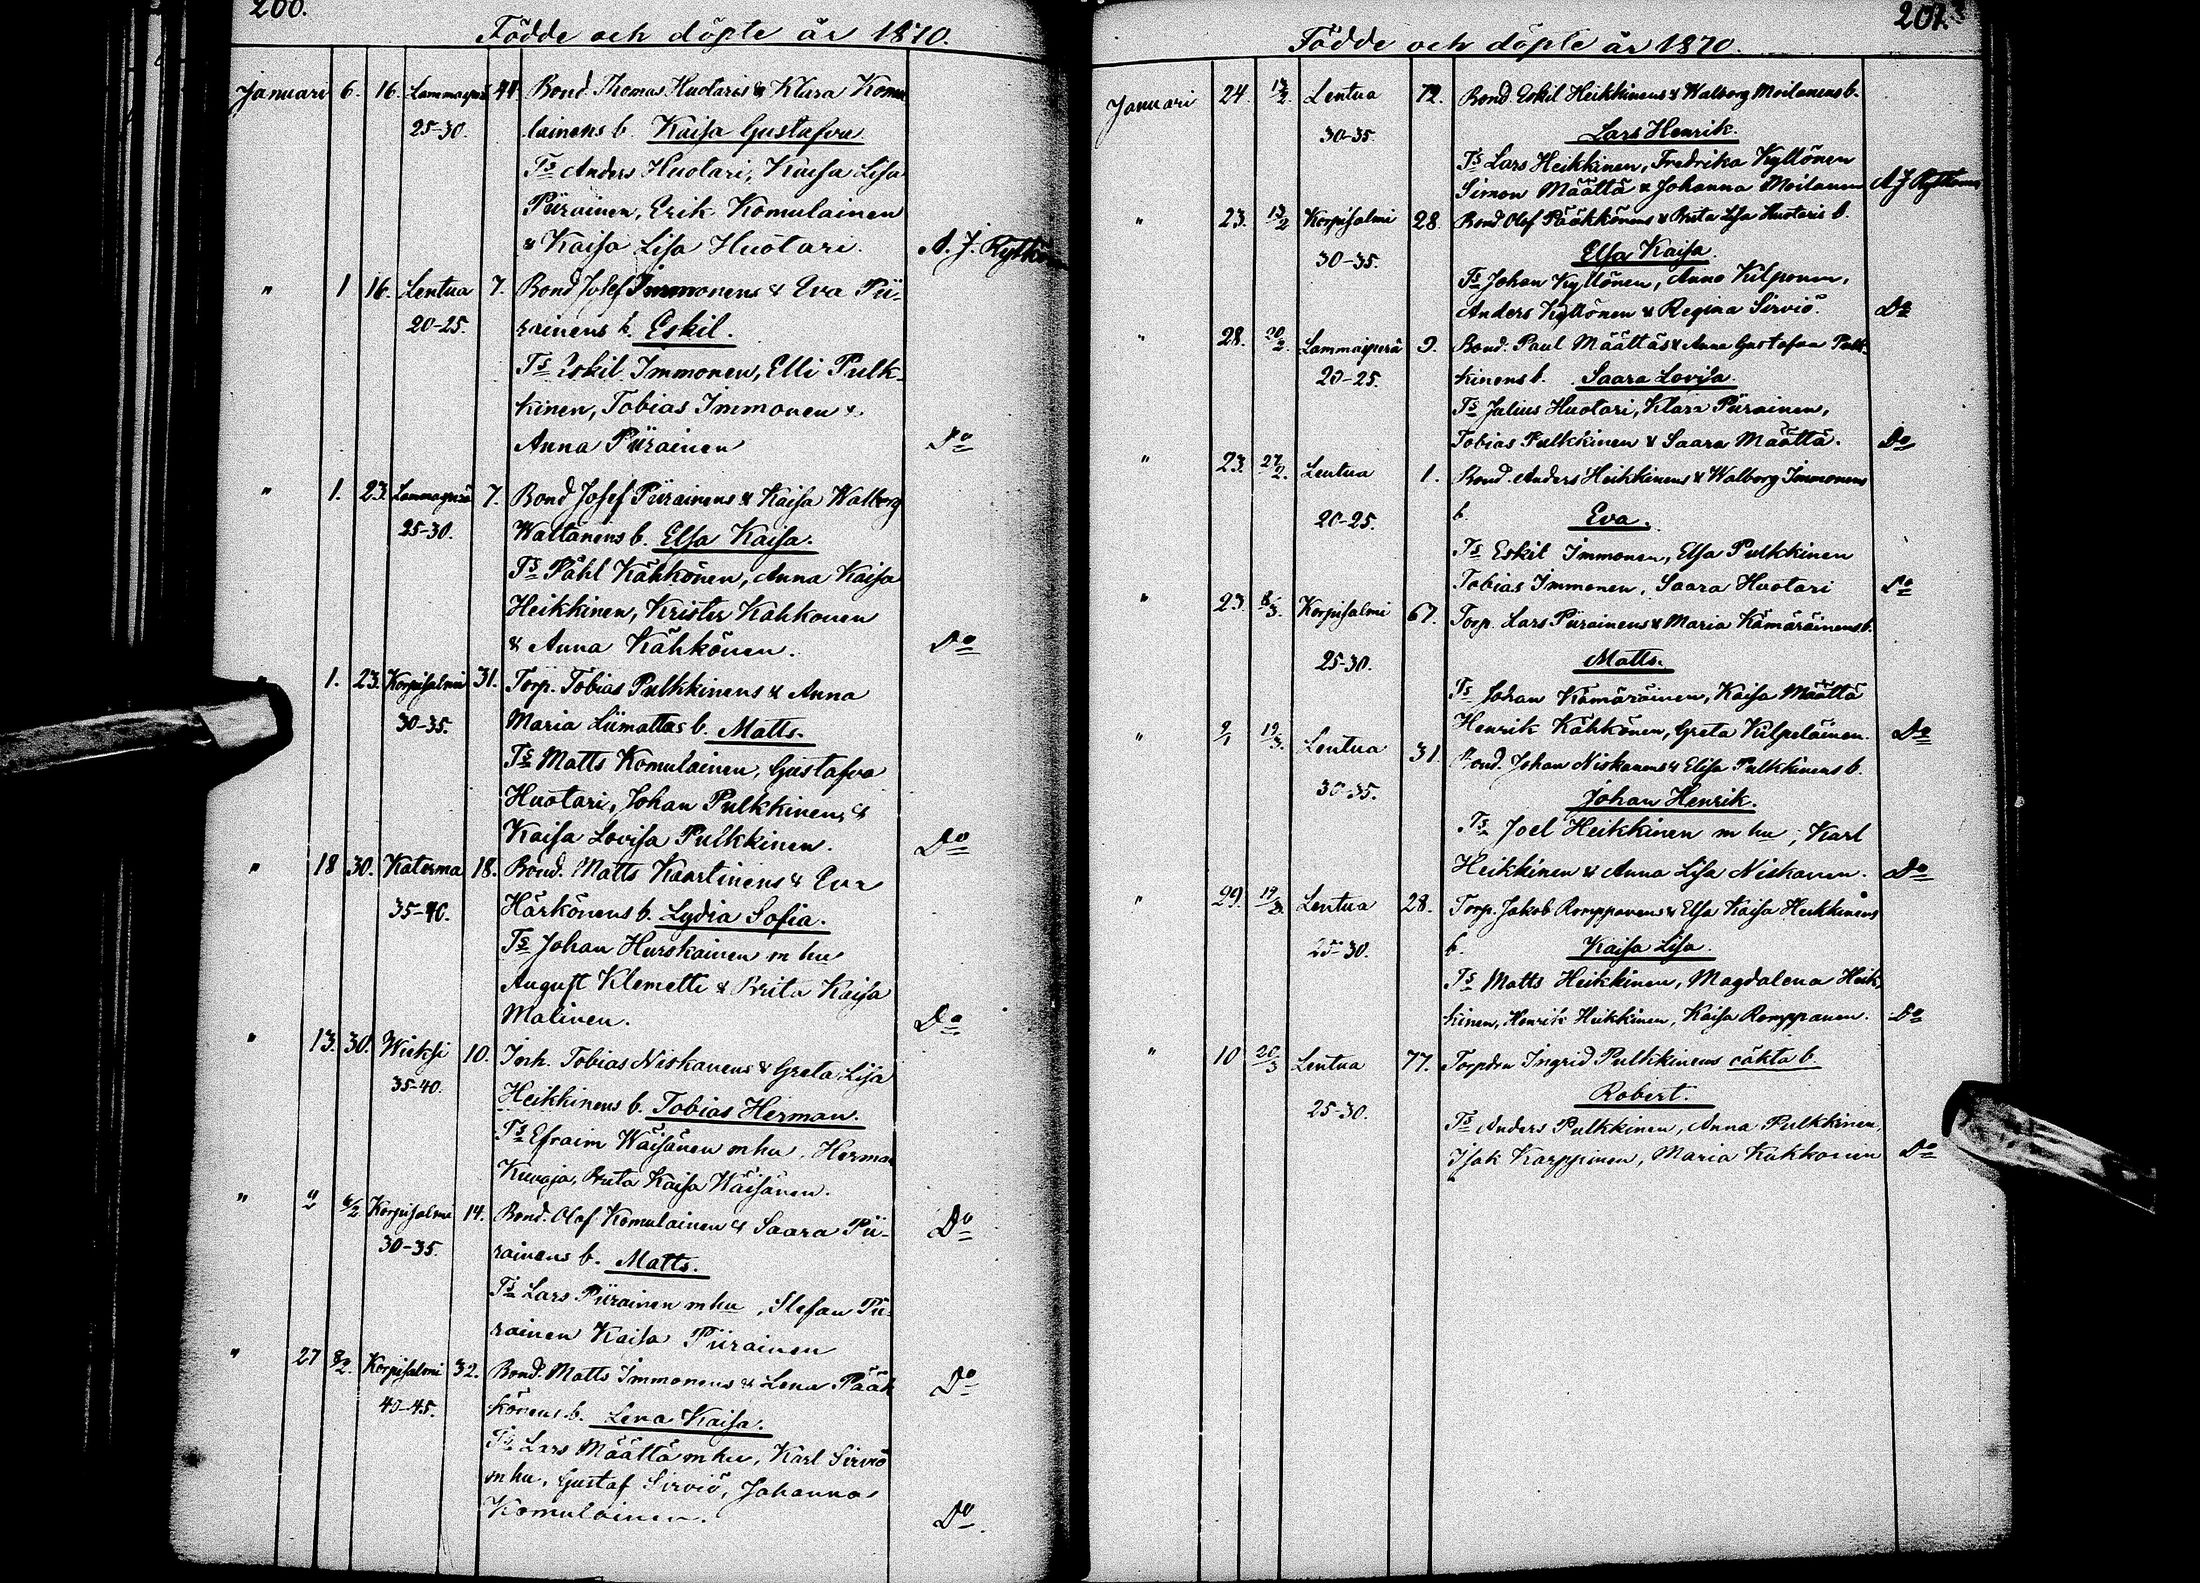 206.
Födde och döpte år 1870.
Januari 6. 16. Lammasperä 44 Bond Thomas Huotaris & Klara Komu
25-30. lainens b. Kaisa Gustafva
Ts Anders Huotari, Kaisa Lisa
Piirainen, Erik Komulainen
& Kaisa Lisa Huotari. A. J. Rytkö
" 1 16. Lentua 7. Bond Josef Immonens & Eva Pii-
20-25. rainens b. Eskil.
Ts Eskil Immonen, Elli Pulk-
kinen, Tobias Immonen &
Anna Piirainen Do
" 1. 23. Lammasperä 7. Bond Josef Piirainens & Kaisa Walborg
25-30. Wattanens b. Elsa Kaisa.
Ts Påhl Kähkönen, Anna Kaisa
Heikkinen, Krister Kähkönen
& Anna Kähkönen. Do
1. 23. Korpisalmi 31. Torp. Tobias Pulkkinens & Anna
30-35. Maria Liimattas b. Matts.
Ts Matts Komulainen, Gustafva
Huotari, Johan Pulkkinen, &
Kaisa Lovisa Pulkkinen. Do
" 18 30. Katerma 18. Bond. Matts Kaartinens & Eva
35-40. Härkönens b. Lydia Sofia.
Ts Johan Hurskainen m hu
August Klemetti & Brita Kaisa
Malinen. Do
" 13. 30. Wieksi 10. Inh. Tobias Niskanens & Greta Lisa
35-40. Heikkinens b. Tobias Herman.
Ts Efraim Wäisänen m hu, Herman
Kuvaja, Brita Kaisa Wäisänen.
" " 6/2 Korpisalmi 14. Bond. Olof Komulainen & Saara Pii- Do
30-35. rainens b. Matts.
Ts Lars Piirainen m hu, Stefan Pii-
rainen Kaisa Piirainen
" 27 8/2. Korpisalmi 32. Bond. Matts Immonens & Lena Pääk Do
40-45. könens b. Lena Kaisa.
Ts Lars Määttä m hu, Karl Sirviö
m hu, Gustaf Sirviö, Johanna
Komulainen. Do.
207.
Födde och döpte år 1870.
Januari 24. 13/2. Lentua 72. Bond. Eskil Heikkinens & Walborg Moilanens b.
30-35. Lars Henrik.
Ts Lars Heikkinen, Fredrika Kyllönen
Simon Määttä & Johanna Moilanen A J Rytkönen
" 23. 13/2 Korpisalmi 28. Bond. Olof Pääkkönens & Brita Lisa Huotaris b.
30-35. Elsa Kaisa.
Ts Johan Kyllönen, Anna Kilponen,
Anders Kyllönen & Regina Sirviö. Do
" 28. 20/2. Lammasperä 9. Bond. Paul Määttäs & Anna Gustafva Pulk-
20-25. kinens b. Saara Lovisa.
Ts Julius Huotari, Klara Piirainen,
Tobias Pulkkinen & Saara Määttä. Do
" 23. 27/2. Lentua 1. Bond. Anders Heikkinens & Walborg Immonens
20-25. b. Eva.
Ts Eskil Immonen, Elsa Pulkkinen
Tobias Immonen, Saara Huotari Do
" 23. 6/3. Korpisalmi 67. Torp. Lars Piirainens & Maria Kämäräinens b.
25-30. Matts.
Ts Johan Kämäräinen, Kaisa Määttä
Henrik Kähkönen, Greta Kilpeläinen. Do
" 9/1 19/3. Lentua 31. Bond. Johan Niskanens & Elisa Pulkkinens b.
30-35. Johan Henrik.
Ts Joel Heikkinen m hu, Karl
Heikkinen & Anna Lisa Niskanen. Do
" 29. 19/3. Lentua 28. Torp. Jakob Romppanens & Elsa Kaisa Heikkinens
25-30. b. Kaisa Lisa.
Ts Matts Heikkinen, Magdalena Heik-
kinen, Henrik Heikkinen, Kaisa Romppanen. Do
" 10 20/3 Lentua 77. Torpdrn Ingrid Pulkkinens oäkta b.
25-30. Robert.
Ts Anders Pulkkinen, Anna Pulkkinen,
Isak Karppinen, Maria Kähkönen Do